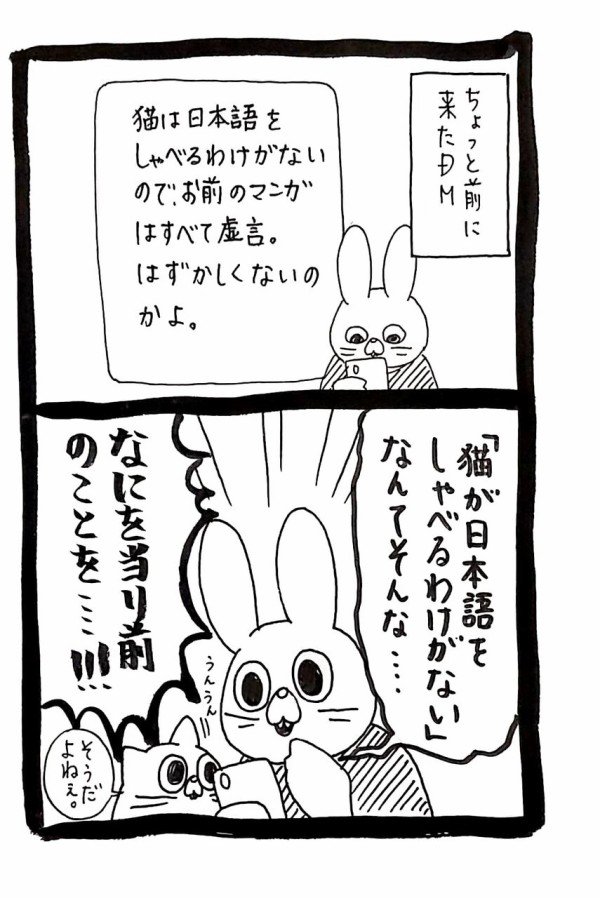 ちょっと前に
来たDM
猫は日本語を
しゃべるわけがない
ので、お前のマンガ
はすべて虚言。
はずかしくないの
かよ。
「猫が日本語を
しゃべるわけがない」
なんてそんな‥‥
なにを当り前
のことを‥‥!!!
うんうん
そうだ
よねぇ。